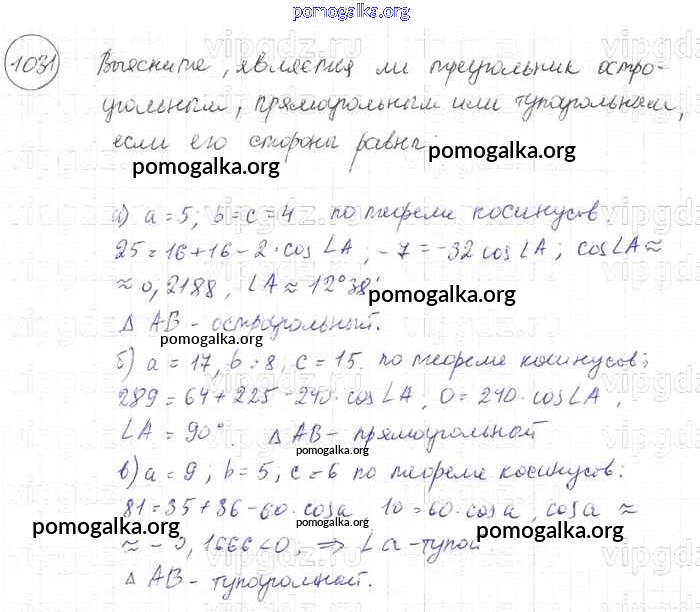 pomogalka.org
1031 Выясните, является ли треугольник остро-
угольным, прямоугольным или тупоугольным,
если его стороны равны:
pomogalka.org
pomogalka.org
а) a = 5; b = c = 4 по теореме косинусов
25 = 16 + 16 - 2 · cos ∠A, -7 = -32 cos ∠A; cos ∠A ≈
≈ 0,2188, ∠A ≈ 12°38'
pomogalka.org
Δ AB - остроугольный.
pomogalka.org
б) a = 17, b = 8; c = 15. по теореме косинусов;
289 = 64 + 225 - 240 · cos ∠A; 0 = 240 · cos ∠A,
∠A = 90°. Δ AB - прямоугольный
pomogalka.org
в) a = 9; b = 5; c = 6 по теореме косинусов:
81 = 35 + 36 - 60 · cos a, 10 = 60 · cos a, cos a ≈
pomogalka.org
pomogalka.org
pomogalka.org
≈ - 0,1666 < 0, ⇒ ∠a - тупой.
Δ AB - тупоугольный.